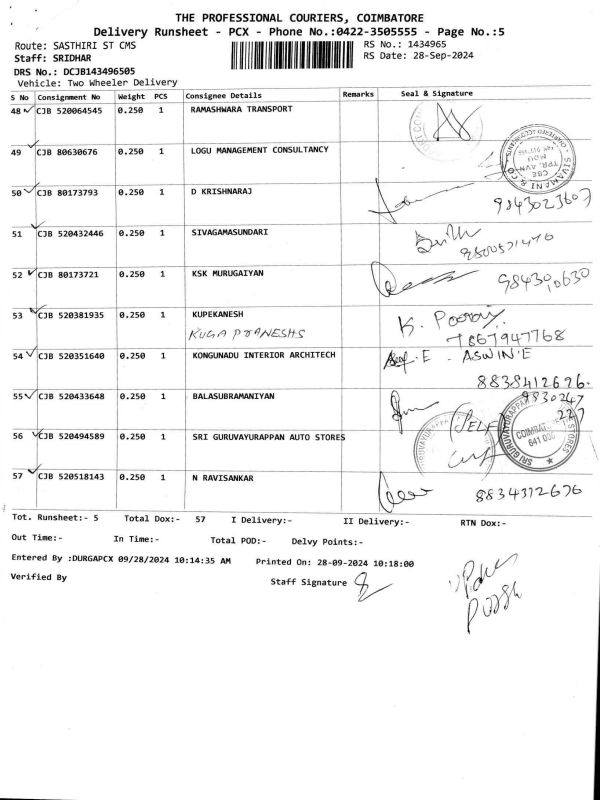 THE PROFESSIONAL COURIERS, COIMBATORE
Delivery Runsheet - PCX - Phone No.:0422-3505555 - Page No.:5
Route: SASTHIRI ST CMS RS No.: 1434965
Staff: SRIDHAR RS Date: 28-Sep-2024
DRS No.: DCJB143496505
Vehicle: Two Wheeler Delivery
S No Consignment No Weight PCS Consignee Details Remarks Seal & Signature
48 CJB 520064545 0.250 1 RAMASHWARA TRANSPORT
49 CJB 80630676 0.250 1 LOGU MANAGEMENT CONSULTANCY
SIVAMANI & CO
50 CJB 80173793 0.250 1 D KRISHNARAJ
9843023607
51 CJB 520432446 0.250 1 SIVAGAMASUNDARI
52 CJB 80173721 0.250 1 KSK MURUGAIYAN
53 CJB 520381935 0.250 1 KUPEKANESH K. Pooraj
KUGA PRANESHS 7667947768
54 CJB 520351640 0.250 1 KONGUNADU INTERIOR ARCHITECH E. ASWIN'E
8838412696.
55 CJB 520433648 0.250 1 BALASUBRAMANIYAN 9830247
227
(SELF)
56 CJB 520494589 0.250 1 SRI GURUVAYURAPPAN AUTO STORES
SRI GURUVAYURAPPAN AUTO STORES
COIMBATORE
641 006
57 CJB 520518143 0.250 1 N RAVISANKAR 8834372676
Tot. Runsheet:- 5 Total Dox:- 57 I Delivery:- II Delivery:- RTN Dox:-
Out Time:- In Time:- Total POD:- Delvy Points:-
Entered By :DURGAPCX 09/28/2024 10:14:35 AM Printed On: 28-09-2024 10:18:00
Verified By Staff Signature